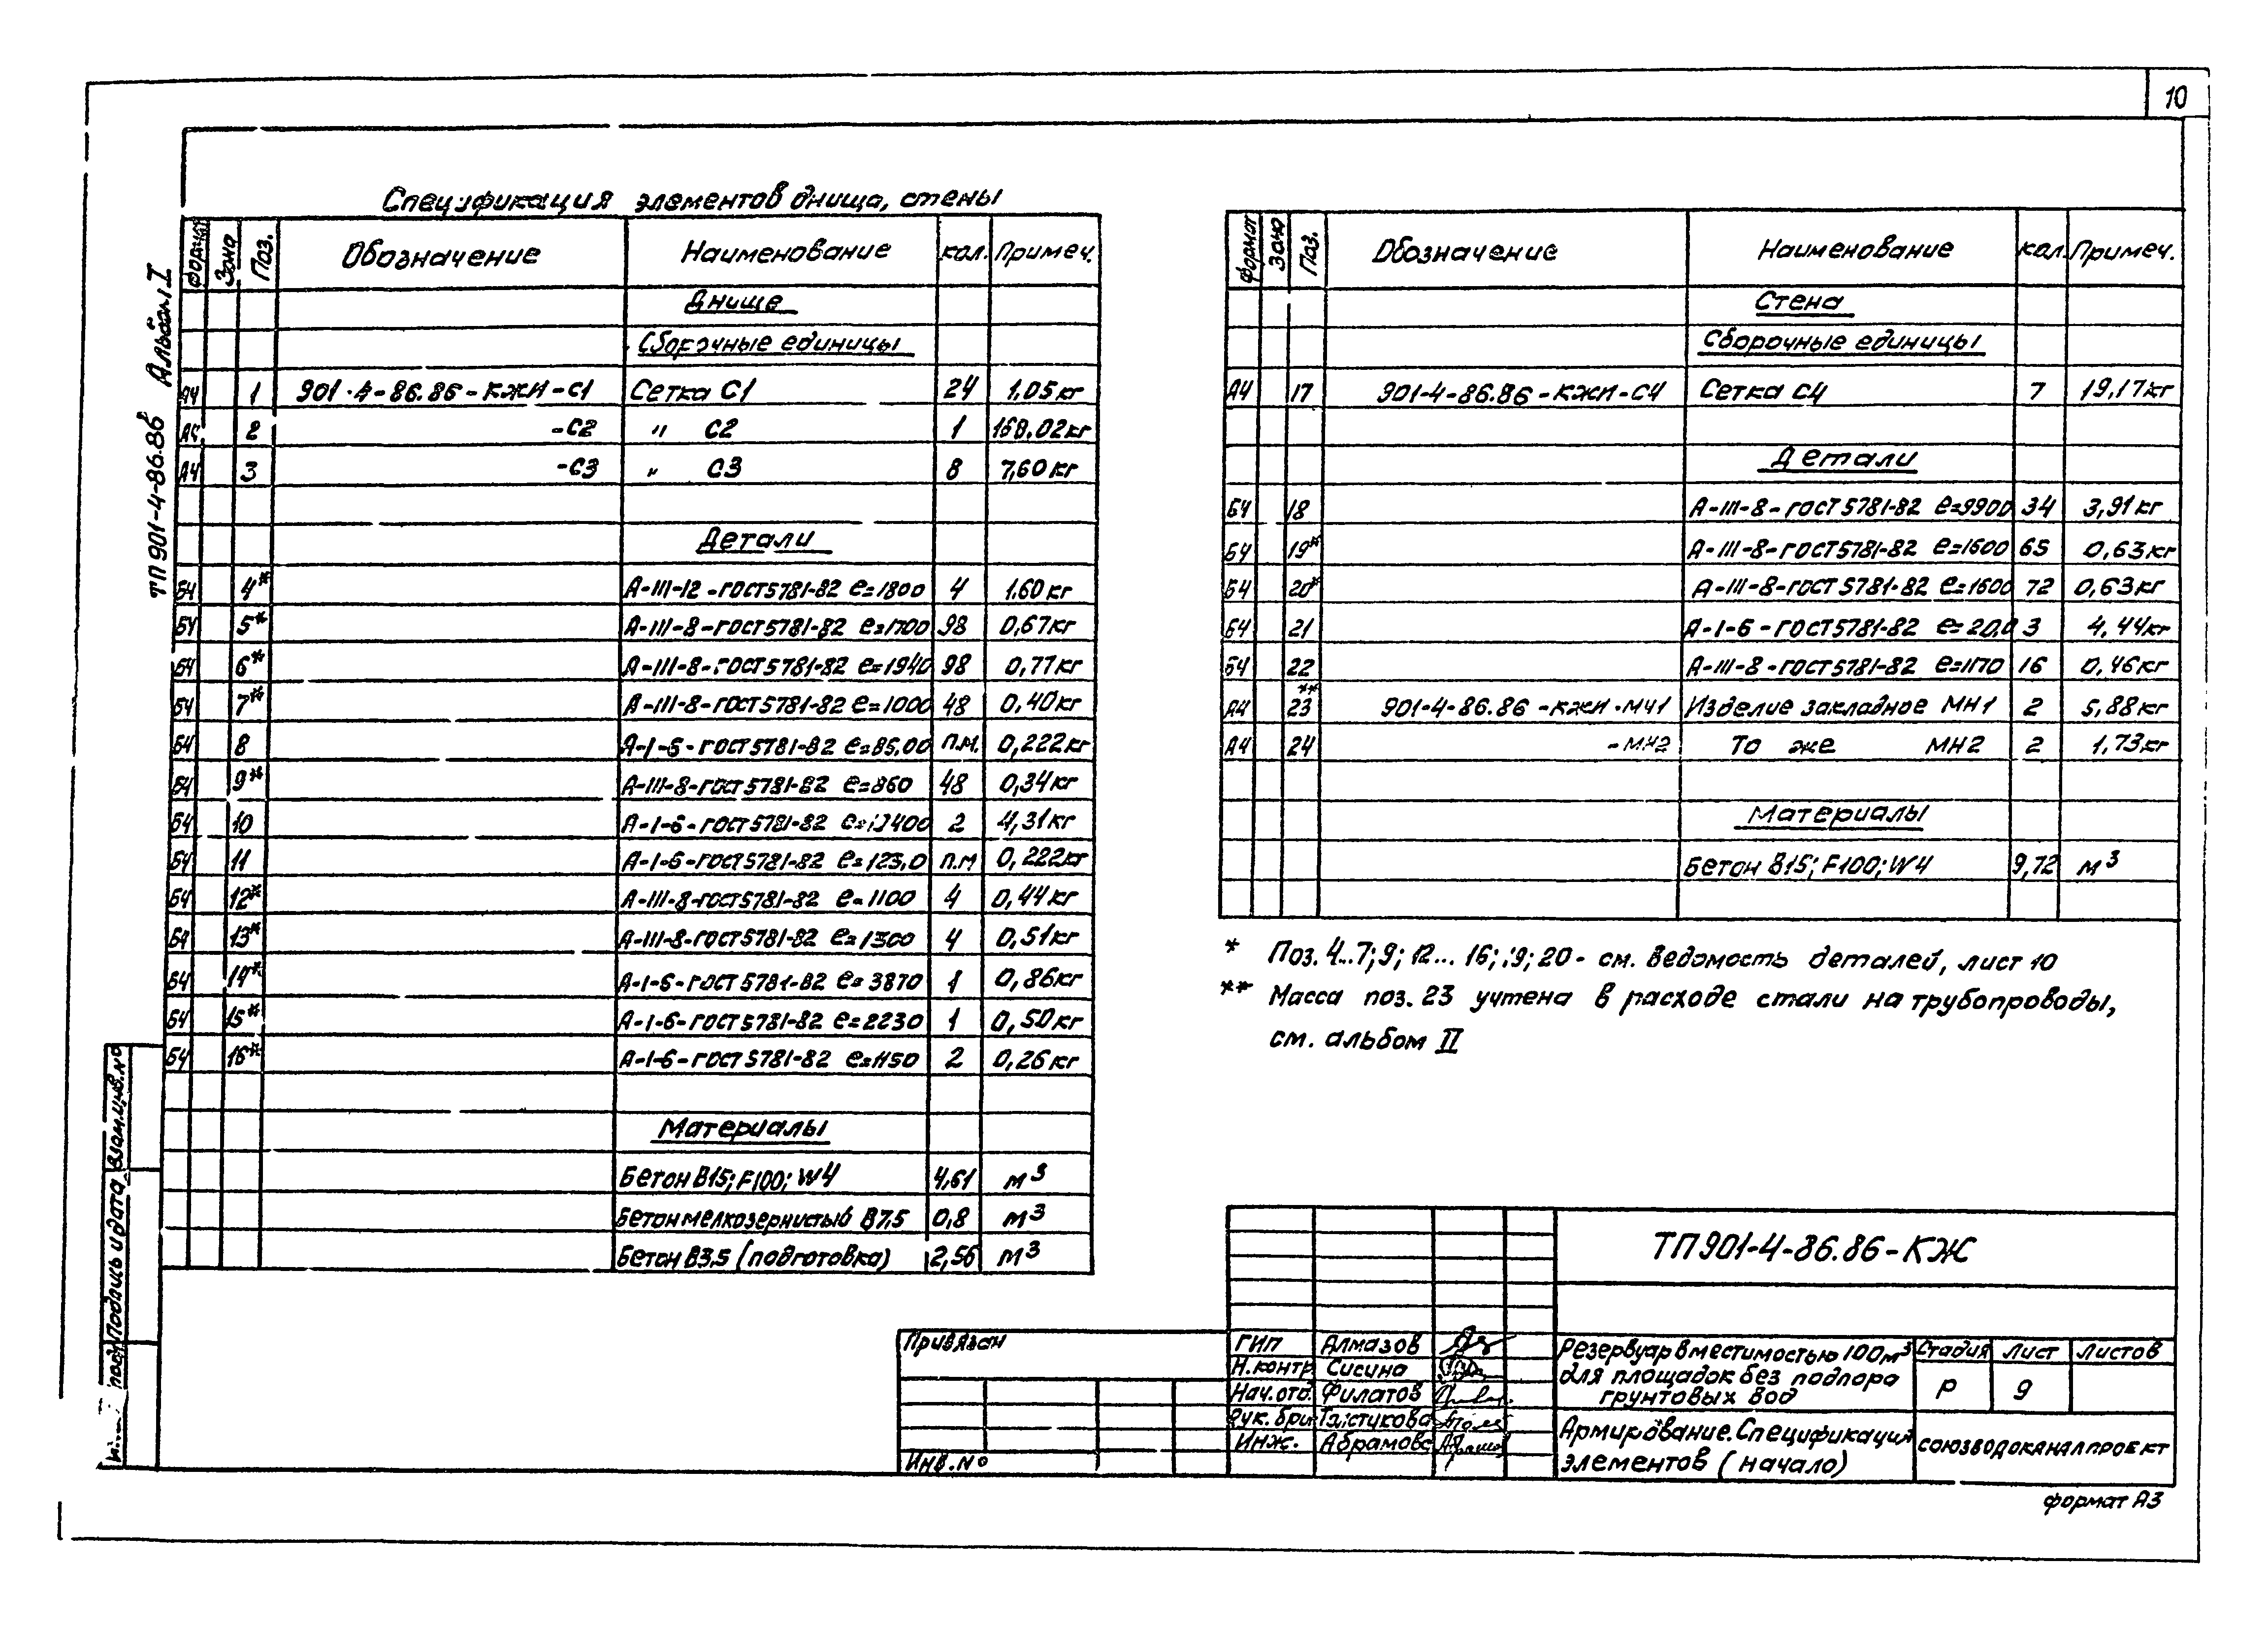 10
ТП 901-4-86.86 Альбом I
Спецификация элементов днища, стены
Формат Зона Поз. Обозначение Наименование Кол. Примеч.
Днище
Сборочные единицы
А4 1 901-4-86.86-КЖИ-С1 Сетка С1 24 1,05 кг
А4 2 -С2 " С2 1 168.02 кг
А4 3 -С3 " С3 8 7,60 кг
Детали
Б4 4* А-III-12-ГОСТ 5781-82 ℓ=1800 4 1.60 кг
Б4 5* А-III-8-ГОСТ 5781-82 ℓ=1700 98 0,67 кг
Б4 6* А-III-8-ГОСТ 5781-82 ℓ=1940 98 0,77 кг
Б4 7* А-III-8-ГОСТ 5781-82 ℓ=1000 48 0,40 кг
Б4 8 А-I-6-ГОСТ 5781-82 ℓ=85.00 п.м. 0,222 кг
Б4 9* А-III-8-ГОСТ 5781-82 ℓ=860 48 0,34 кг
Б4 10 А-I-6-ГОСТ 5781-82 2 4,31 кг
Б4 11 А-I-6-ГОСТ 5781-82 ℓ=123,0 п.м 0,222 кг
Б4 12* А-III-8-ГОСТ 5781-82 ℓ=1100 4 0,44 кг
Б4 13* А-III-8-ГОСТ 5781-82 ℓ=1300 4 0,51 кг
Б4 14* А-I-6-ГОСТ 5781-82 ℓ=3870 1 0,86 кг
Б4 15* А-I-6-ГОСТ 5781-82 ℓ=2230 1 0,50 кг
Б4 16* А-I-6-ГОСТ 5781-82 ℓ=1150 2 0,26 кг
Материалы
Бетон В15; F100; W4 4,61 м³
Бетон мелкозернистый В7,5 0,8 м³
Бетон В3,5 (подготовка) 2,56 м³
Формат Зона Поз. Обозначение Наименование Кол. Примеч.
Стена
Сборочные единицы
А4 17 901-4-86.86-КЖИ-С4 Сетка С4 7 19,17 кг
Детали
Б4 18 А-III-8-ГОСТ 5781-82 ℓ=9900 34 3,91 кг
Б4 19* А-III-8-ГОСТ 5781-82 ℓ=1600 65 0,63 кг
Б4 20* А-III-8-ГОСТ 5781-82 ℓ=1600 72 0,63 кг
Б4 21 А-I-6-ГОСТ 5781-82 ℓ=20,0 3 4,44 кг
Б4 22 А-III-8-ГОСТ 5781-82 ℓ=1170 16 0,46 кг
А4 23** 901-4-86.86-КЖИ-МН1 Изделие закладное МН1 2 5,88 кг
А4 24 -МН2 То же МН2 2 1,73 кг
Материалы
Бетон В15; F100; W4 9,72 м³
* Поз. 4...7; 9; 12... 16; 19; 20 - см. Ведомость деталей, лист 10
** Масса поз. 23 учтена в расходе стали на трубопроводы,
см. альбом II
Взам.инв.№
Подпись и дата
подл
Привязан
Инв.№
ТП 901-4-86.86-КЖ
ГИП Алмазов
Н.контр Сисина
Нач.отд. Филатов
Рук.бриг
Инж. Абрамова
Резервуар вместимостью 100м³
для площадок без подпора
грунтовых вод
Стадия Лист Листов
Р 9
Армирование. Спецификация
элементов (начало)
СОЮЗВОДОКАНАЛПРОЕКТ
формат А3